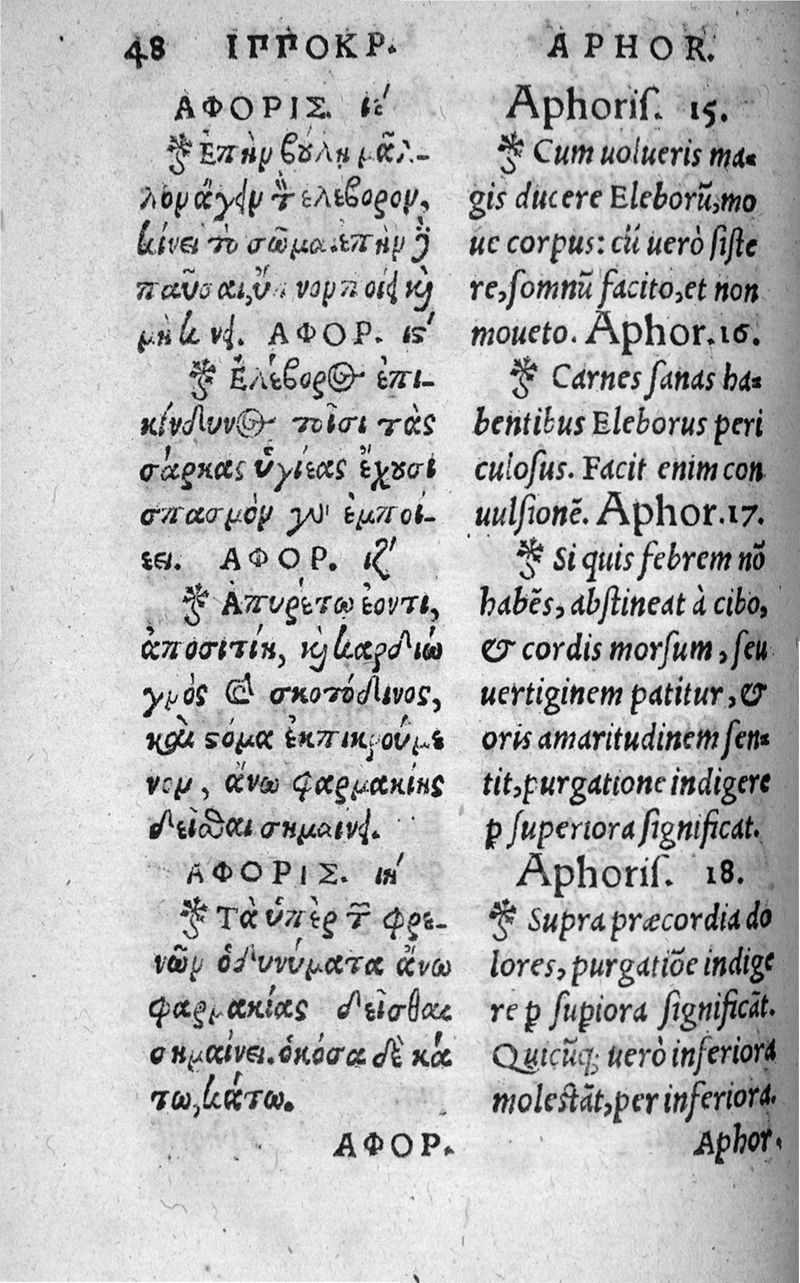 48 ΙΠΠΟΚΡ.
ΑΦΟΡΙΣ. ιε΄
Ἐπὴν βούλῃ μᾶλ-
λον ἄγειν τ̃ ἐλέβορον,
κίνει τὸ σῶμα. ἐπὴν δὲ
παῦσαι, ὕπνον ποίει καὶ
μὴ κίνει. ΑΦΟΡ. ις΄
Ἐλέβορος ἐπι-
κίνδυνος τοῖσι τὰς
σάρκας ὑγιέας ἔχουσι
σπασμὸν γὰρ ἐμποι-
έει. ΑΦΟΡ. ιζ΄
Ἀπυρέτῳ ἐόντι,
ἀποσιτίη, καὶ καρδιω
γμὸς καὶ σκοτόδινος,
καὶ στόμα ἐκπικρούμε
νον, ἄνω φαρμακίης
δεῖσθαι σημαίνει.
ΑΦΟΡΙΣ. ιη΄
Τὰ ὑπὲρ τ̃ φρε-
νῶν ὀδυνήματα ἄνω
φαρμακίας δεῖσθαι
σημαίνει. ὁκόσα δὲ κά
τω, κάτω.
ΑΦΟΡ.
APHOR.
Aphoris. 15.
Cum uolueris ma-
gis ducere Eleborũ, mo
ue corpus: cũ uerò siste
re, somnũ facito, et non
moueto. Aphor. 16.
Carnes sanas ha-
bentibus Eleborus peri
culosus. Facit enim con
uulsionẽ. Aphor. 17.
Si quis febrem nõ
habẽs, abstineat à cibo,
& cordis morsum, seu
uertiginem patitur, &
oris amaritudinem sen-
tit, purgatione indigere
ꝑ superiora significat.
Aphoris. 18.
Supra præcordia do
lores, purgatiõe indige
re ꝑ supiora significãt.
Quicũq; uerò inferiora
molestãt, per inferiora.
Aphor.